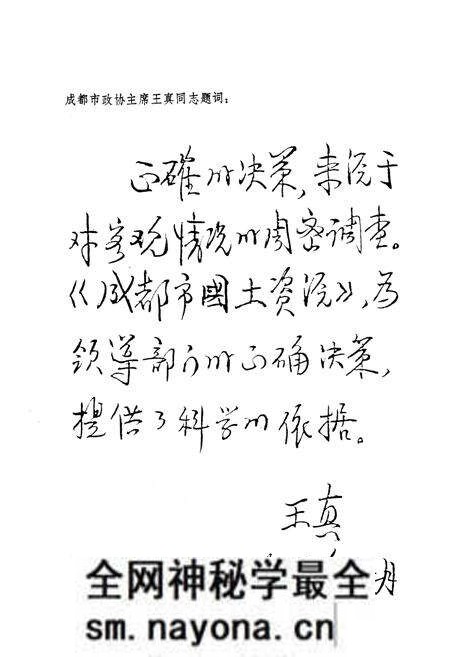 成都市政协主席王真同志题词：
正確的决策，来源于
对客观情况的周密调查。
《成都市國土资源》，为
领导部门的正确决策，
提供了科学的依据。
王真
月
全网神秘学最全
sm.nayona.cn